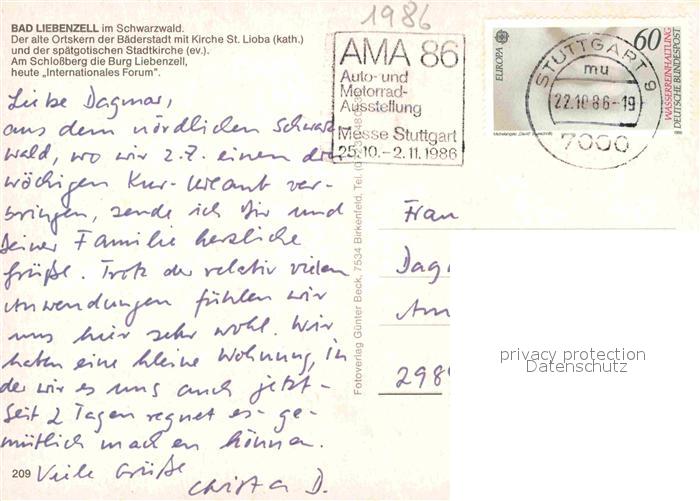 1986
BAD LIEBENZELL im Schwarzwald.
Der alte Ortskern der Bäderstadt mit Kirche St. Lioba (kath.)
und der spätgotischen Stadtkirche (ev.).
Am Schloßberg die Burg Liebenzell,
heute „Internationales Forum".
AMA 86
Auto- und
Motorrad-
Ausstellung
Messe Stuttgart
25.10.-2.11.1986
STUTTGART 9
mu
22.10.86-19
7000
EUROPA
60
WASSERREINHALTUNG
DEUTSCHE BUNDESPOST
Liebe Dagmar,
aus dem nördlichen Schwarz-
wald, wo wir z.Z. einen drei
wöchigen Kur-Urlaub ver-
bringen, sende ich Dir und
Deiner Familie herzliche
Grüße. Trotz der relativ vielen
Anwendungen fühlen wir
uns hier sehr wohl. Wir
haben eine kleine Wohnung, in
der wir es uns auch jetzt -
seit 2 Tagen regnet es - ge-
mütlich machen können.
Viele Grüße
Christa D.
209
Fotoverlag Günter Beck, 7534 Birkenfeld, Tel.
Frau
Dag
Am
298
privacy protection
Datenschutz